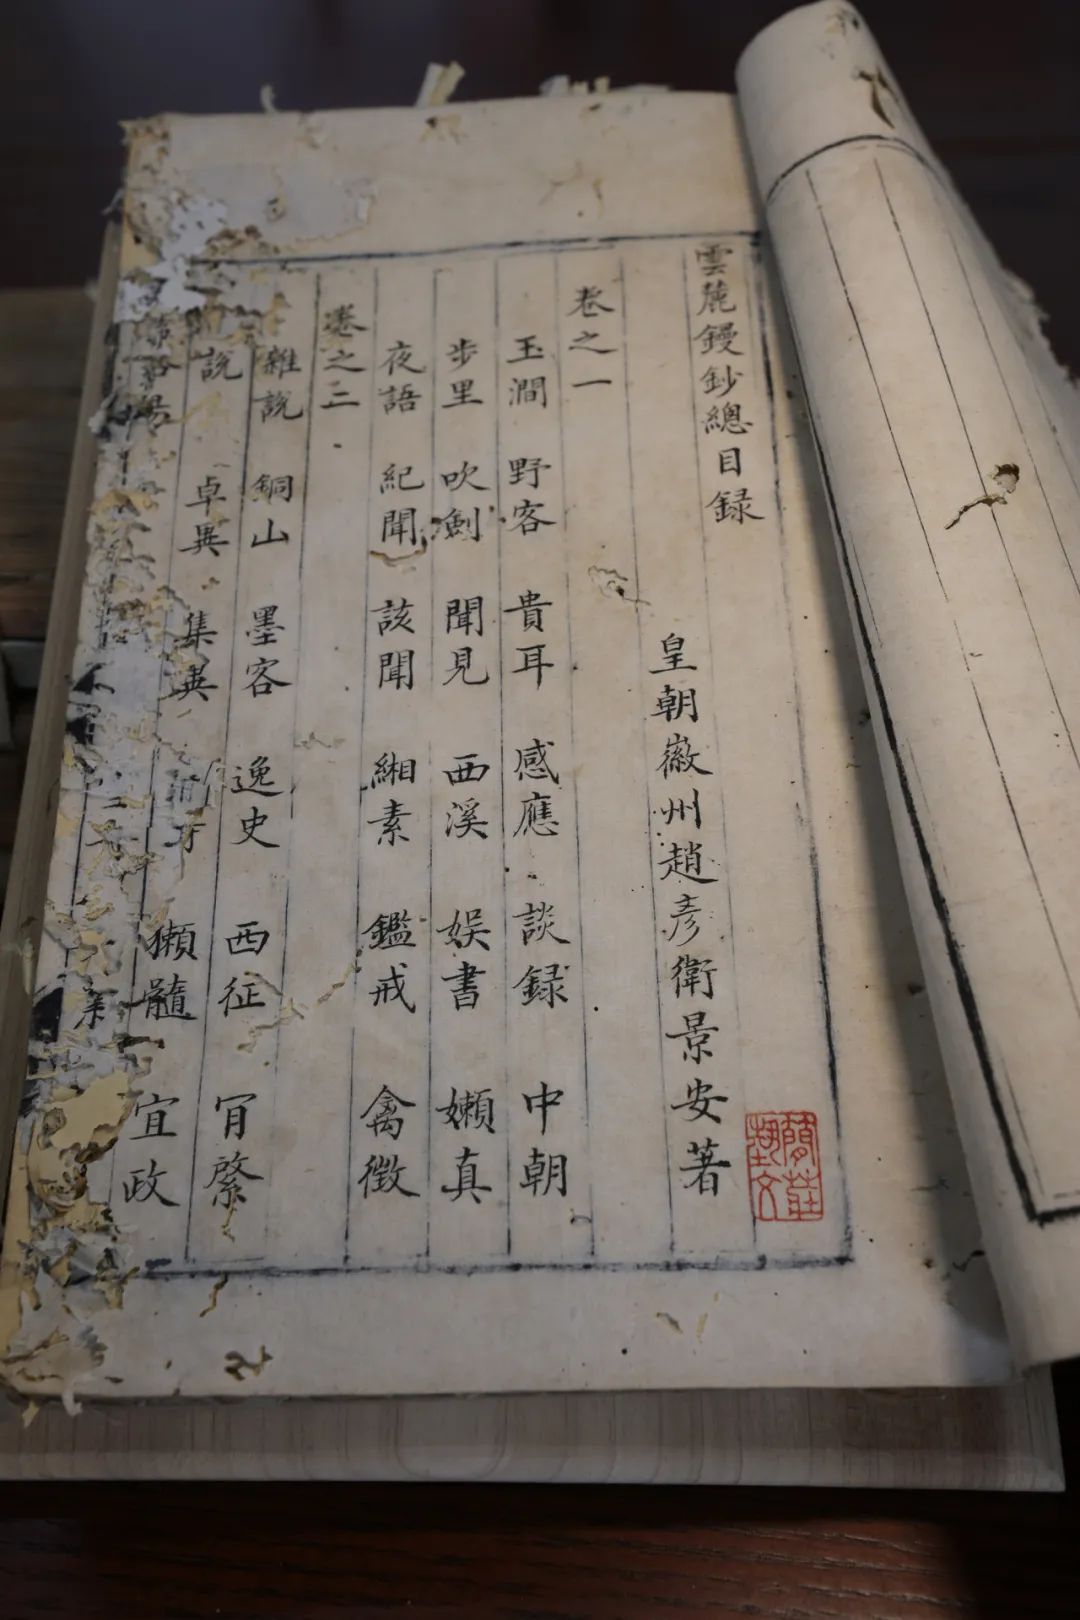 雲麓鏝鈔總目録
皇朝徽州趙彥衛景安著
卷之一
玉澗 野客 貴耳 感應 談録 中朝
步里 吹劍 聞見 西溪 娯書 嬾真
夜語 紀聞 該聞 緗素 鑑戒 禽徴
卷之二
雜説 銅山 墨客 逸史 西征 肎綮
説 卓異 集異 獺髓 宜政